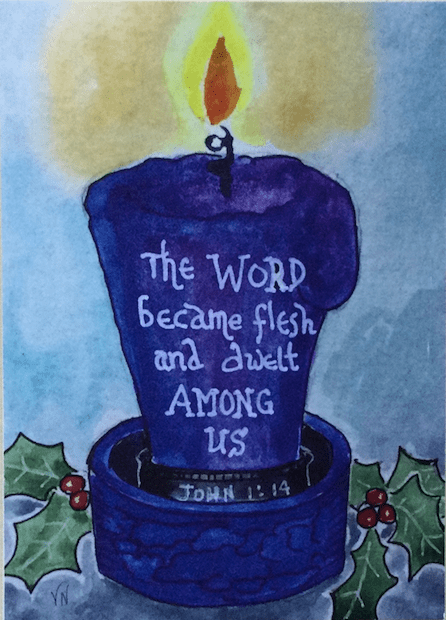 The WORD
became flesh
and dwelt
AMONG
US
JOHN 1:14
VN